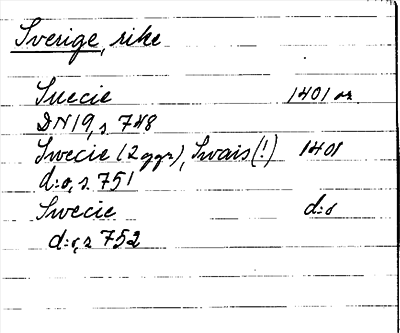 Sverige, rike
Suecie 1401 or
DN 19, s. 748
Swecie (2 ggr), Swais (!) 1401
d:o, s. 751
Swecie d:o
d:o, s. 752